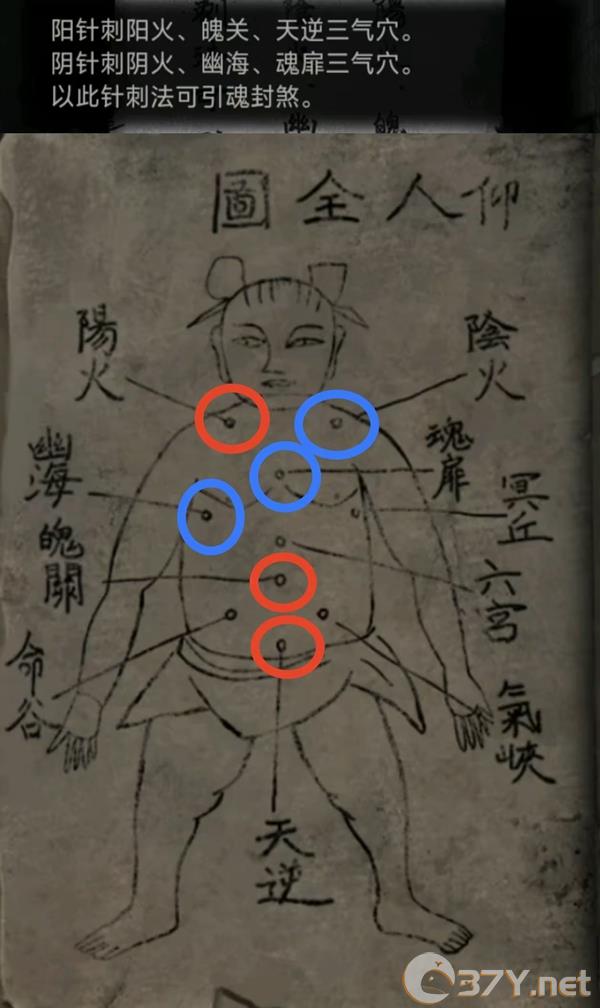 阳针刺阳火、魄关、天逆三气穴。
阴针刺阴火、幽海、魂扉三气穴。
以此针刺法可引魂封煞。
圖全人仰
陽火
陰火
幽海
魂扉
魄關
冥丘
六宮
命谷
氣峽
天逆
37Y.net